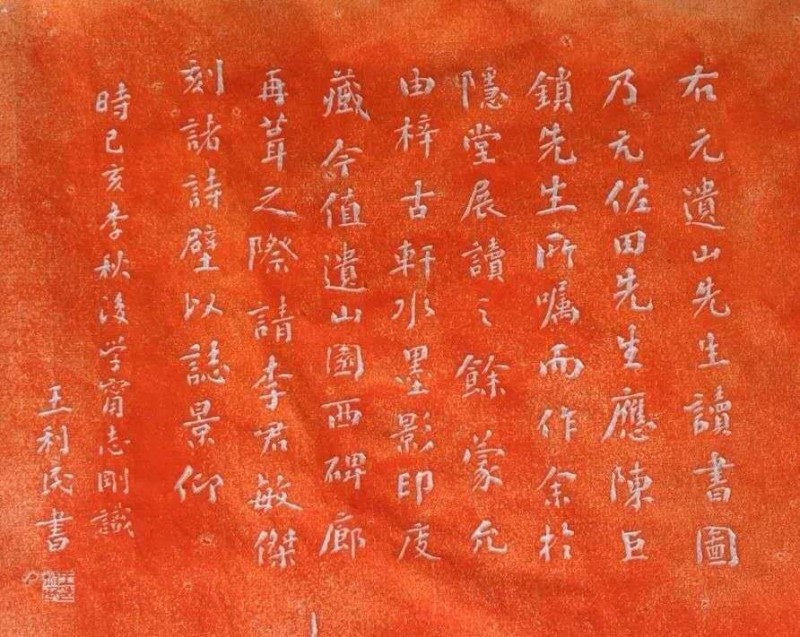 右元遺山先生讀書圖
乃元佐田先生應陳巨
鎖先生所囑而作余於
隱堂展讀之餘蒙允
由梓古軒水墨影印庋
藏今值遺山園西碑廊
再葺之際請李君敏傑
刻諸詩壁以誌景仰
時己亥季秋後学甯志剛識
王利民書